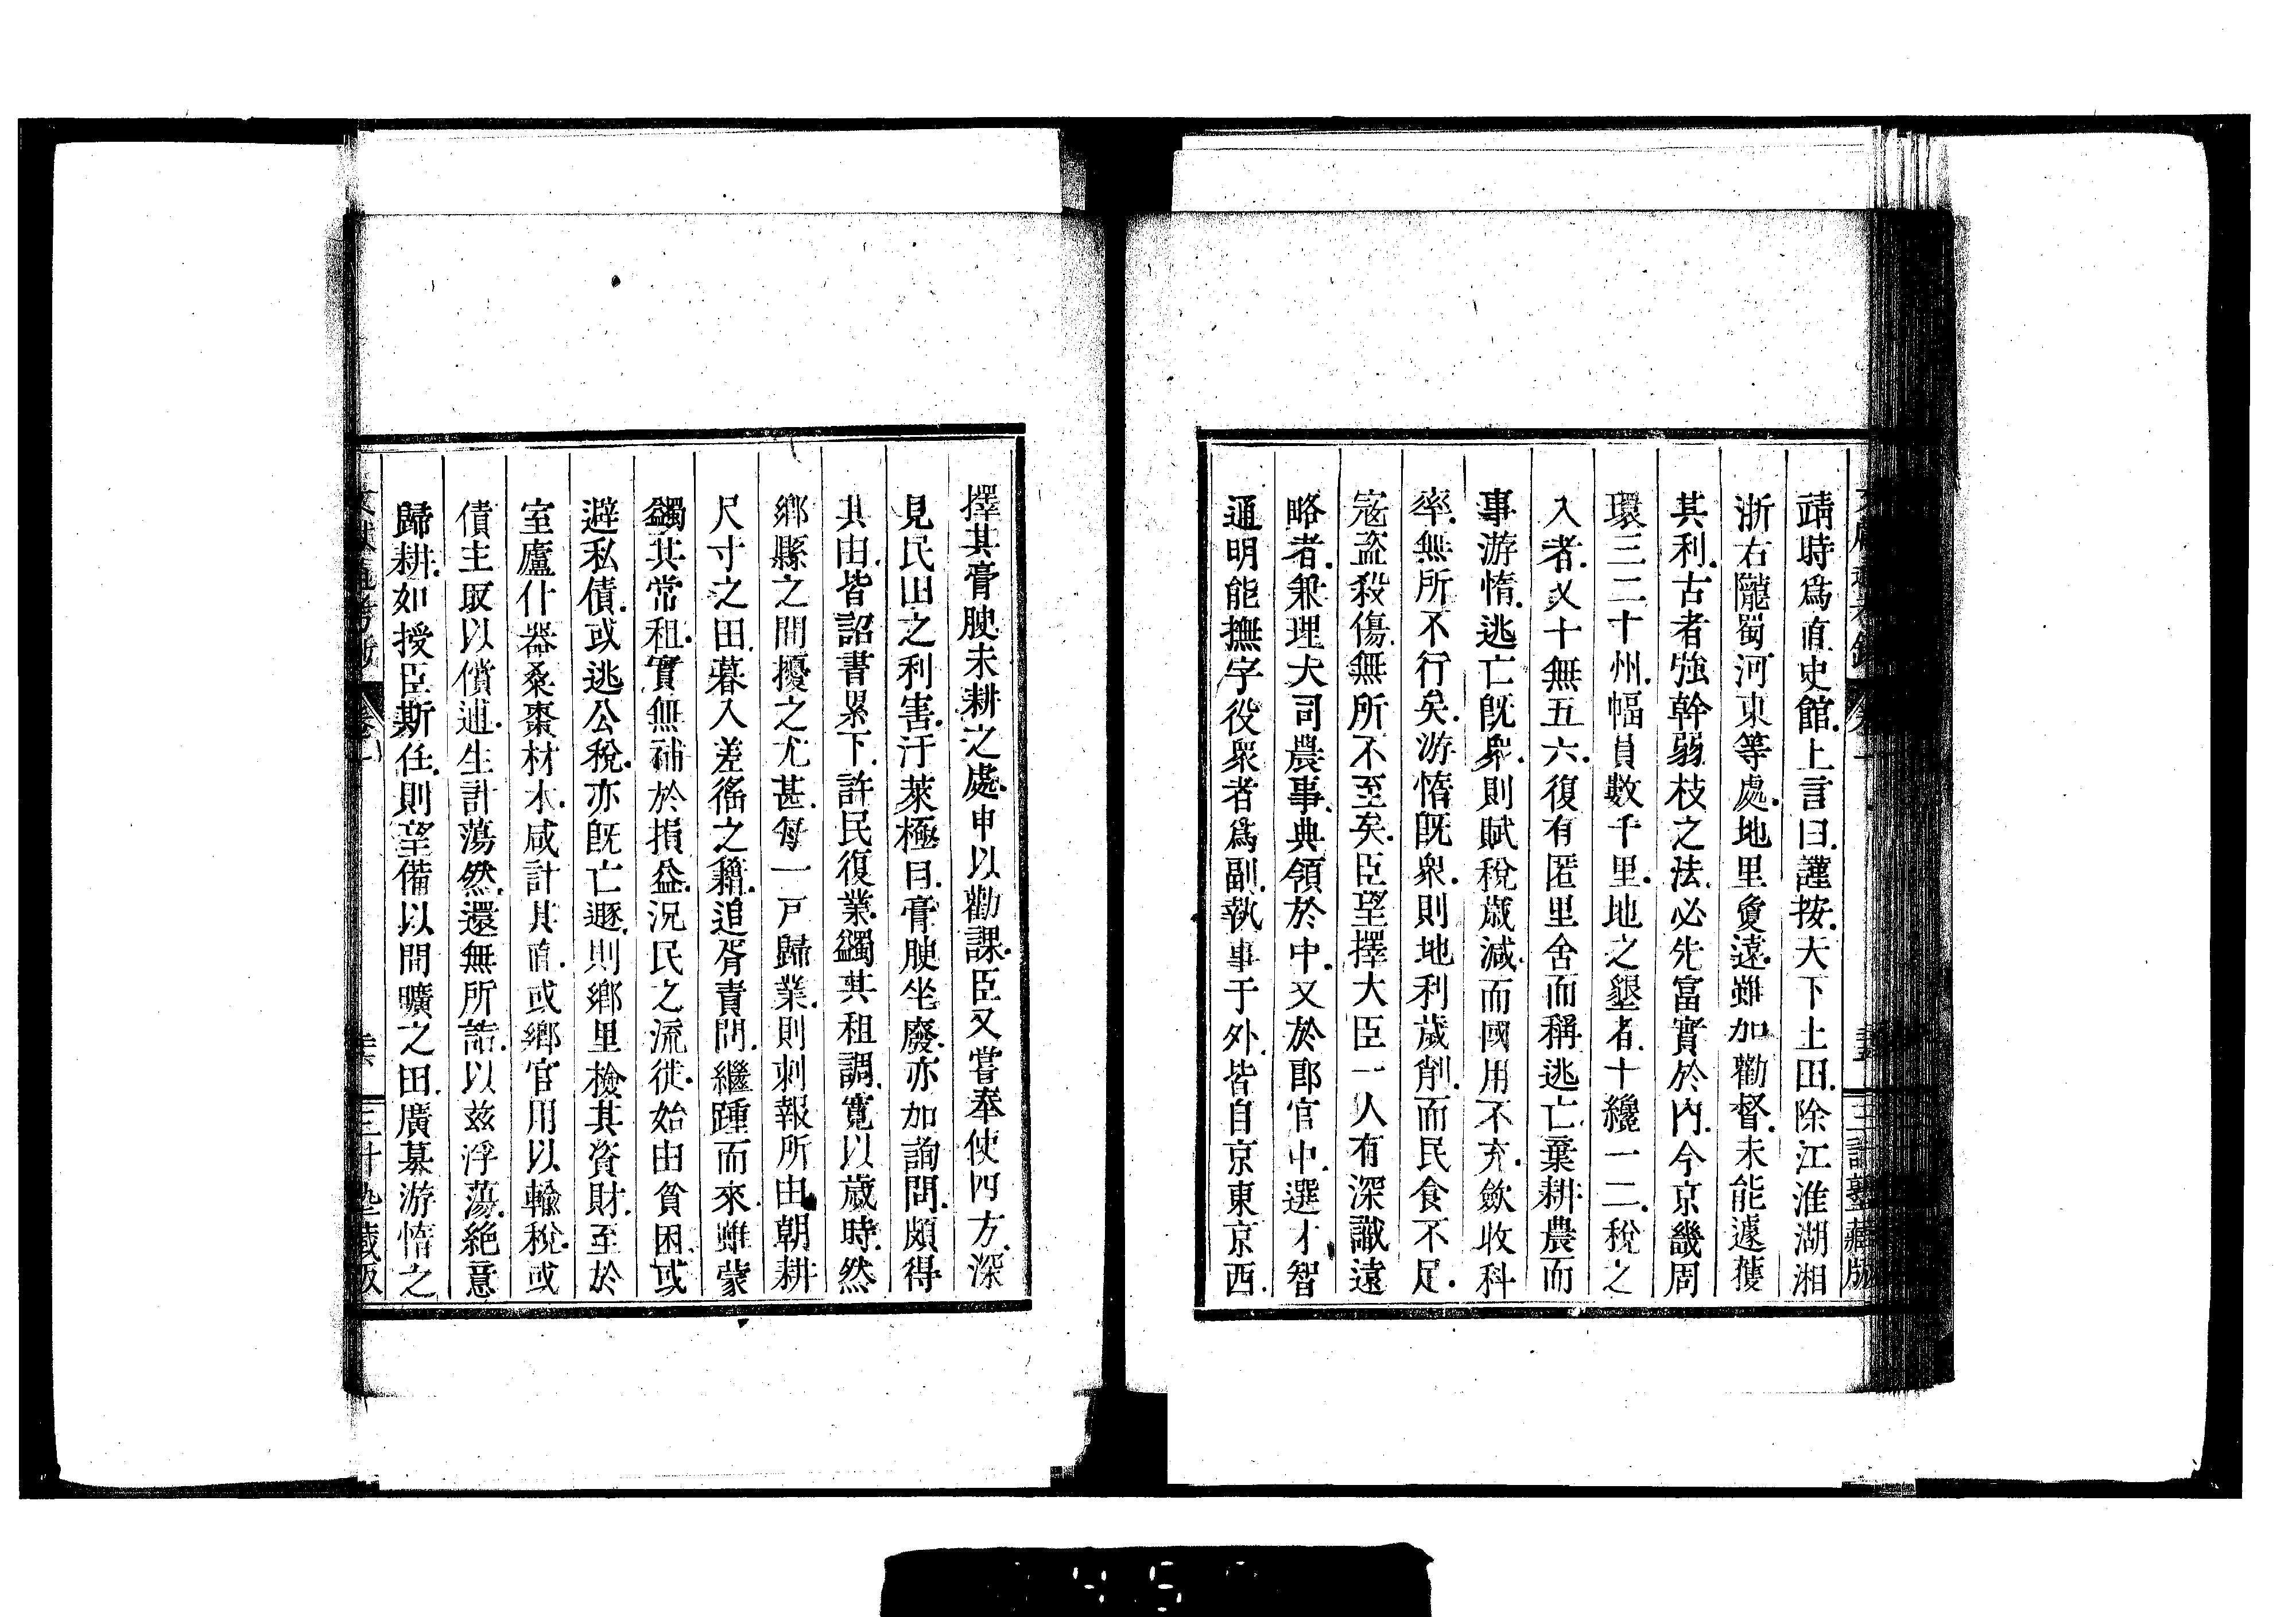 靖時爲直史館上言曰謹按天下土田除江淮湖湘
浙右隴蜀河東等處地里敻遠雖加勸督未能遽獲
其利古者強幹弱枝之法必先富實於內今京畿周
環三二十州幅員數千里地之墾者十纔一二稅之
入者又十無五六復有匿里舍而稱逃亡棄耕農而
事游惰逃亡旣衆則賦稅歲減而國用不充斂收科
率無所不行矣游惰旣衆則地利歲削而民食不足
寇盜殺傷無所不至矣臣望擇大臣一人有深識遠
略者兼理大司農事典領於中又於郎官中選才智
通明能撫字役衆者爲副執事于外皆自京東京西
擇其膏腴未耕之處申以勸課臣又嘗奉使四方深
見民田之利害汙萊極目膏腴坐廢亦加詢問頗得
其由皆詔書累下許民復業蠲其租調寬以歲時然
鄉縣之間擾之尤甚每一戸歸業則刺報所由朝耕
尺寸之田暮入差徭之籍追胥責問繼踵而來雖蒙
蠲其常租實無補於損益況民之流徙始由貧困或
避私債或逃公稅亦旣亡遯則鄉里檢其資財至於
室廬什器桑棗材木咸計其直或鄉官用以輸稅或
債主取以償逋生計蕩然還無所詣以茲浮蕩絕意
歸耕如授臣斯任則望備以閒曠之田廣募游惰之